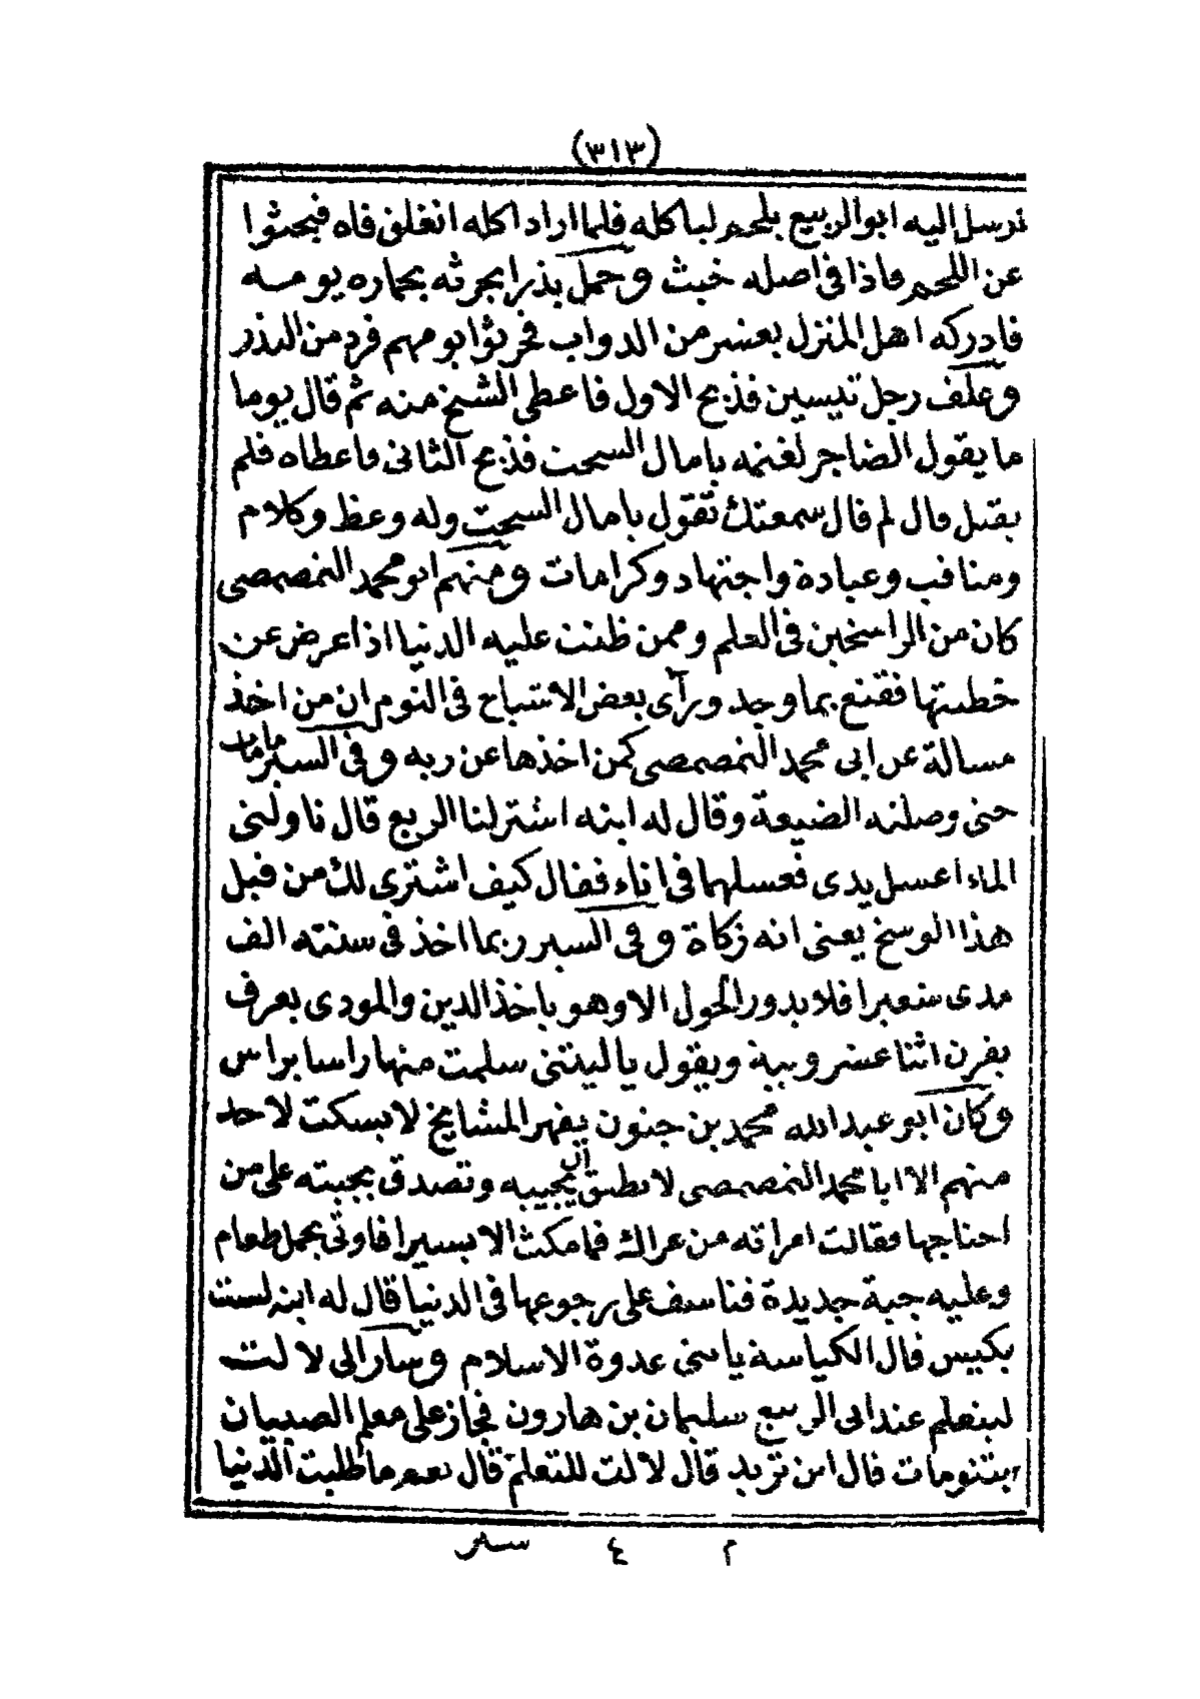 (٣١٣)
نرسل اليه ابو الربيع بلحم لياكله فلما اراد اكله انغلق فاه فبحثوا
عن اللحم فاذا فى اصله خبث وحمل بذرا يحرثه بحماره يومـه
فادركه اهل المنزل بعشر من الدواب فحرثوا بو مهم فرد من البذر
وعلف رجل تيسين فذبح الاول فاعطى الشيخ منه ثم قال يوما
ما يقول الضاجر لغنمه يا مال السحت فذبح الثانى فاعطاه فلم
يقبل قال لم قال سمعتك تقول يا مال السحت وله وعظ وكلام
ومناقب وعبادة واجتهاد وكرامات ومنهم ابو محمد النمصمصى
كان من الراسخين فى العلم وممن ظنت عليه الدنيا اذا اعرض عن
خطبتها فقنع بما وجد ورآى بعض الاشياخ فى النوم ان من اخذ
مسالة عن ابى محمد النمصمصى كمن اخذها عن ربه وفى السير ما مات
حتى وصلته الضيعة وقال له ابنه اشتر لنا الربع قال ناولنى
الماء اغسل يدى فغسلهما فى اناء فقال كيف اشترى لك من قبل
هذا الوسخ يعنى انه زكاة وفى السير ربما اخذ فى سنته الف
مدى شعيرا فلا يدور الحول الا وهو ياخذ الدين والمودى يعرف
بفرن اثنا عشر ويبة ويقول يا ليتنى سلمت منها راسا براس
وكان ابو عبد الله محمد بن جنون يقهر المشايخ لا يسكت لاحد
منهم الا ابا محمد النمصمصى لا يطيق ان يجيبه وتصدق بجبته على من
احتاجها فقالت امراته من عراك فما مكث الا يسيرا فاوتى بحمل طعام
وعليه جبة جديدة فتاسف على رجوعها فى الدنيا قال له ابنه لست
بكيس قال الكياسة يا بنى عدوة الاسلام وسار الى لالت
ليتعلم عند ابى الربيع سليمان بن هارون فجاز على معلم الصبيان
بتنومات قال اين تريد قال لالت للتعلم قال نعم ما طلبت الدنيا
م ٤ سير